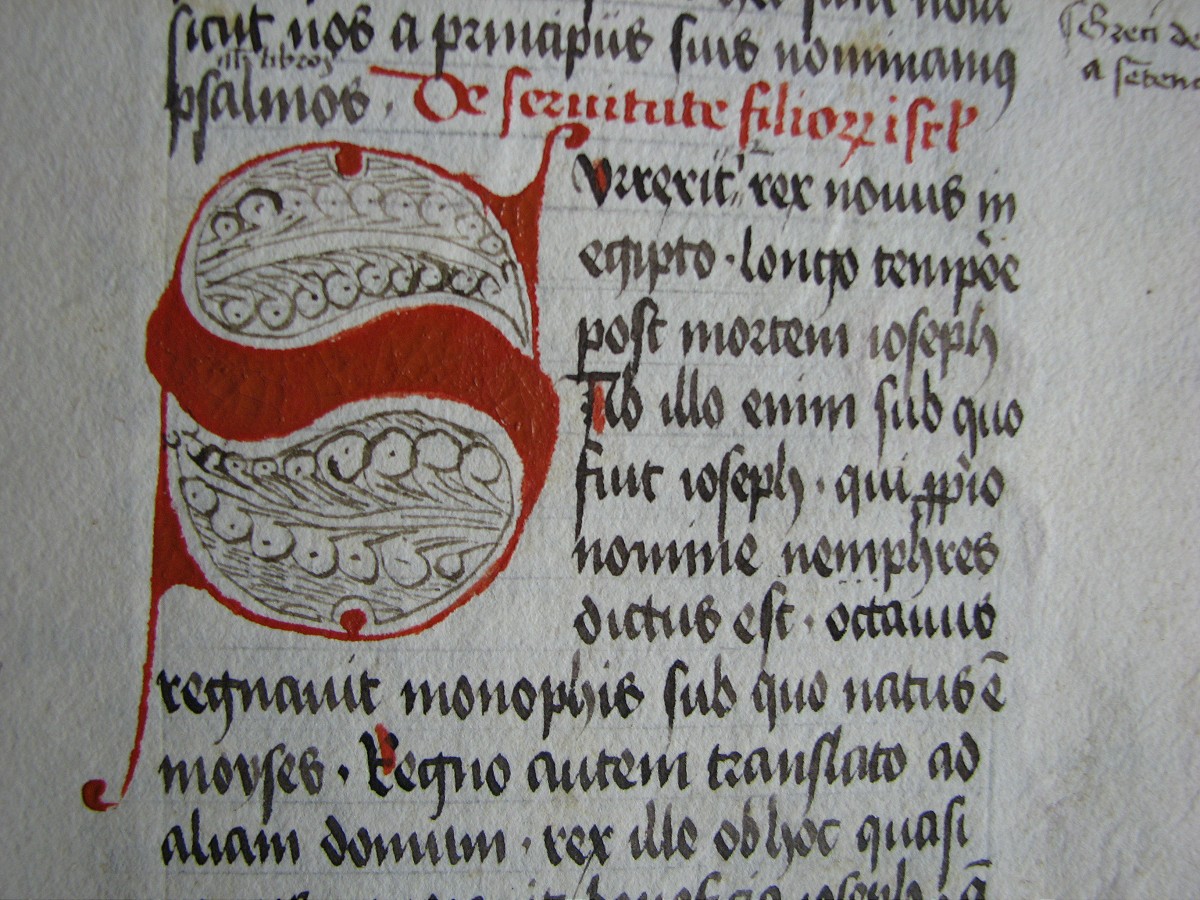 sicut nos a principiis suis nominamus
illos libros
psalmos · De seruitute filiorꝝ isrl̓
Surrexit rex nouus in
egipto · longo tempoꝛe
post mortem ioseph
Ab illo enim sub quo
fuit ioseph · qui ꝓp̄io
nomine nemphres
dictus est · octauus
regnauit monophis sub quo natus ē
moyses · Regno autem translato ad
aliam domum · rex ille ob hoc quasi
beneficia ioseph
Greci de
a seten